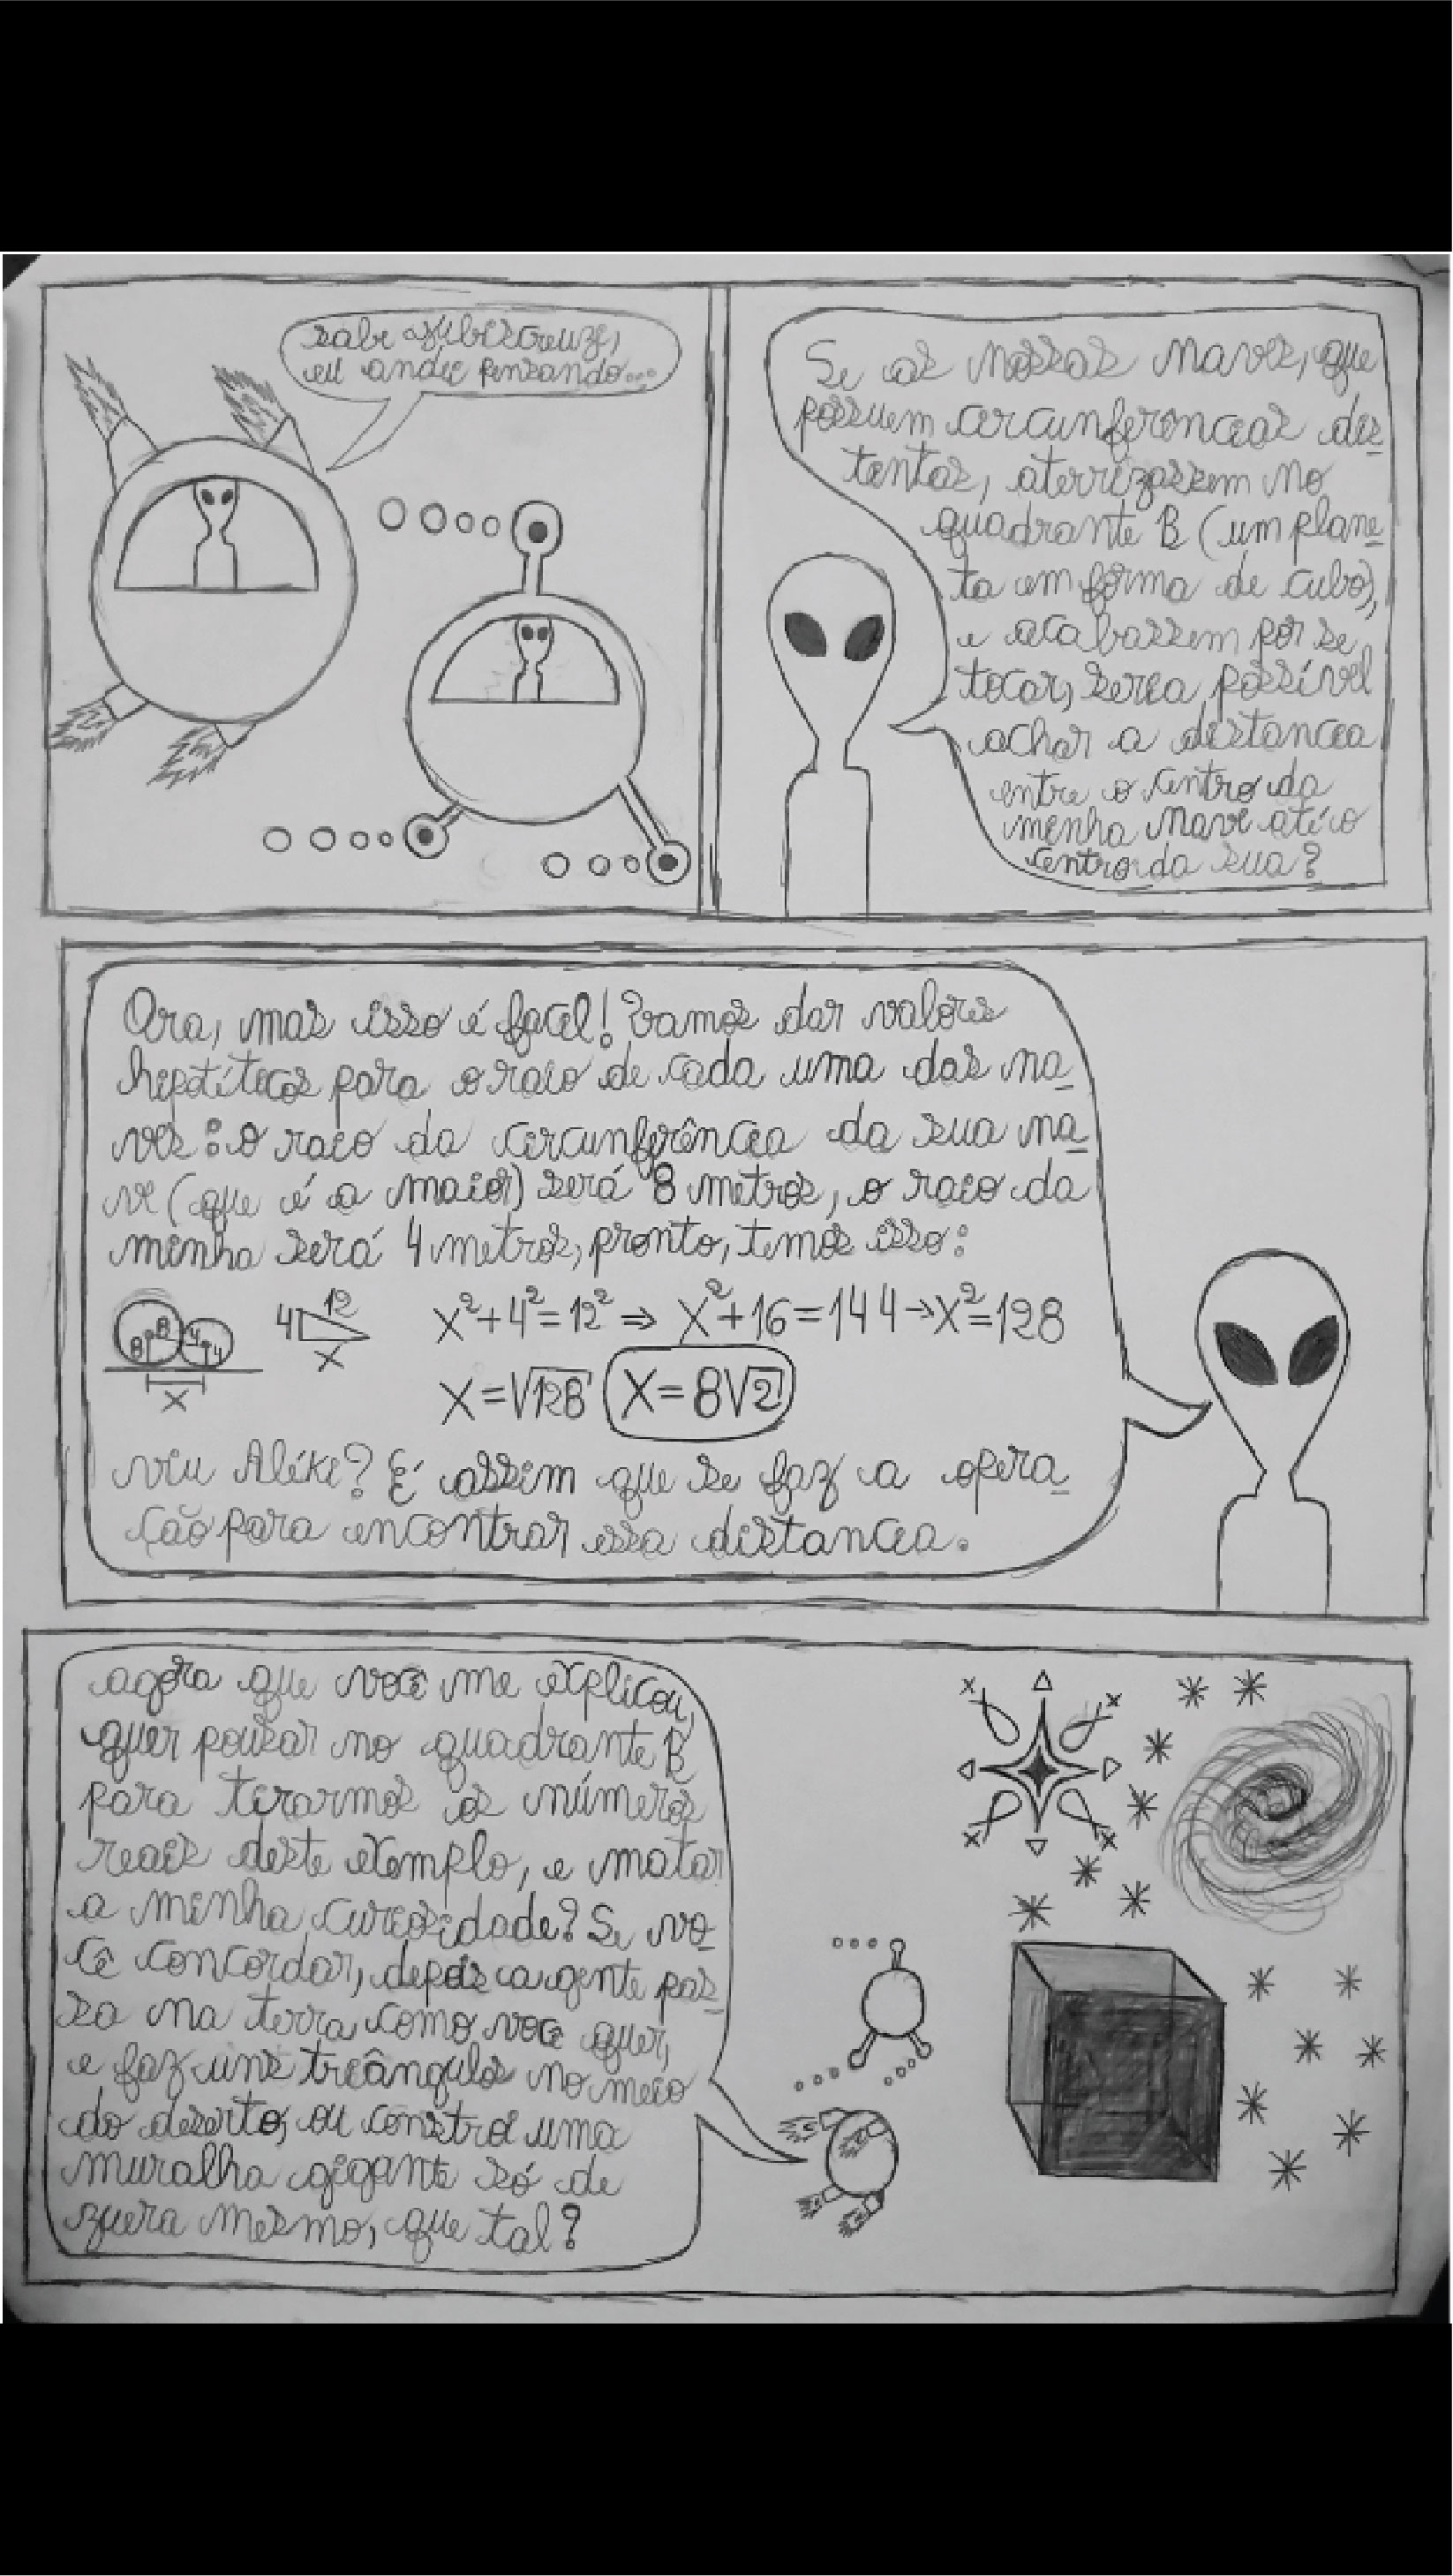 sabe
eu andei pensando...
Se as nossas naves, que
possuem circunferencias dis
tintas, aterrizassem no
quadrante B (um plane
ta em forma de cubo),
e acabassem por se
tocar, seria possível
achar a distancia
entre o centro da
minha nave até o
centro da sua?
Ora, mas isso é facil! Vamos dar valores
hipotíticos para o raio de cada uma das na
ves: o raio da circunferência da sua na
ve (que é a maior) será 8 metros, o raio da
minha será 4 metros, pronto, temos isso:
8 8 4 4
x
4 12
x
x²+4²=12² ⇒ x²+16=144→x²=128
x=√128 x=8√2
viu Alíki? É assim que se faz a opera
ção para encontrar essa distancia.
agora que você me explicou,
quer pousar no quadrante B
para tirarmos os números
reais deste exemplo, e matar
a minha curiosidade? Se vo
cê concordar, depois a gente pas
sa na terra como você quer,
e faz uns triângulos no meio
do deserto, ou constroi uma
muralha gigante só de
zuera mesmo, que tal?